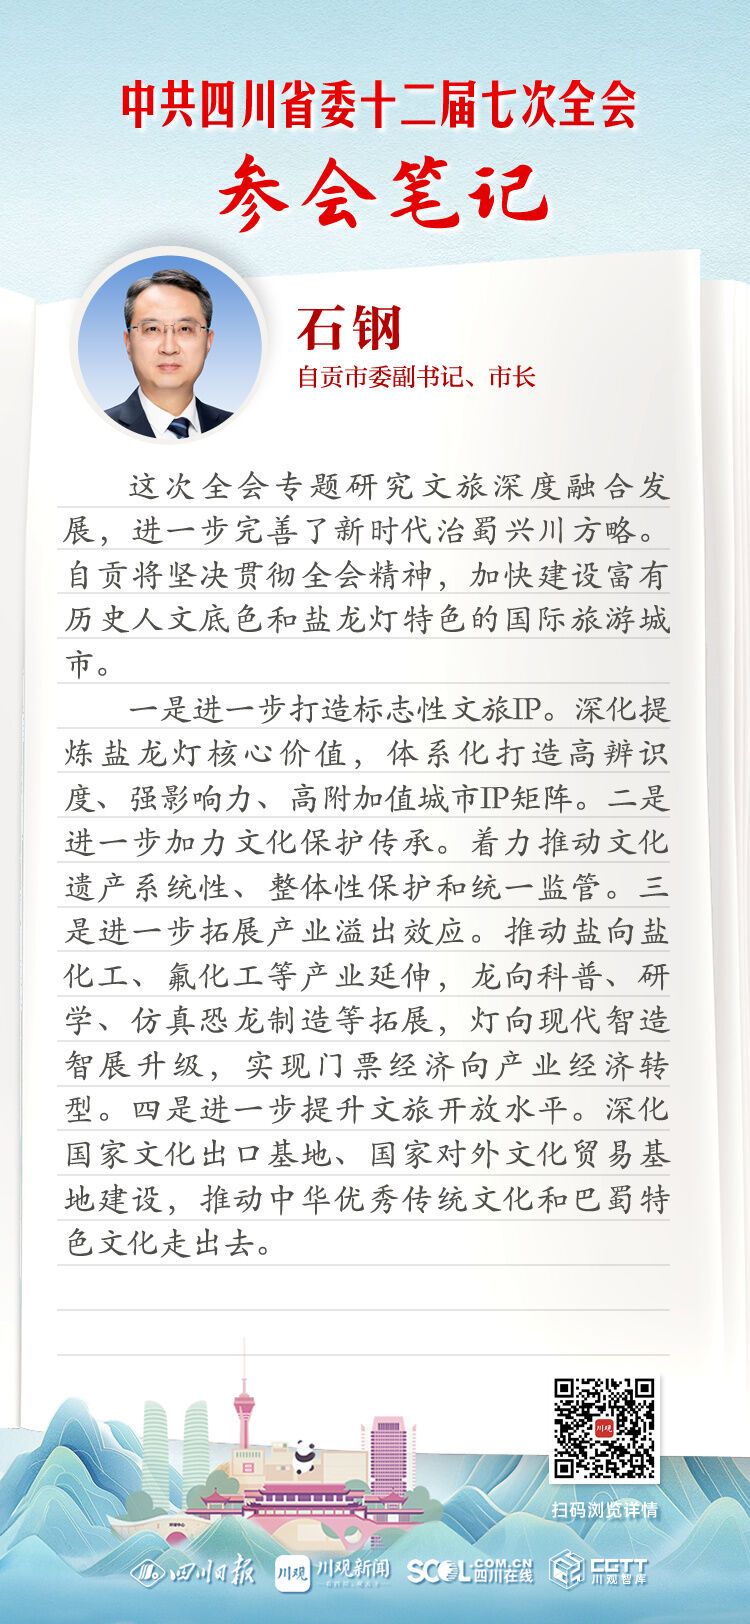 中共四川省委十二届七次全会
参会笔记
石钢
自贡市委副书记、市长
这次全会专题研究文旅深度融合发
展，进一步完善了新时代治蜀兴川方略。
自贡将坚决贯彻全会精神，加快建设富有
历史人文底色和盐龙灯特色的国际旅游城
市。
一是进一步打造标志性文旅IP。深化提
炼盐龙灯核心价值，体系化打造高辨识
度、强影响力、高附加值城市IP矩阵。二是
进一步加力文化保护传承。着力推动文化
遗产系统性、整体性保护和统一监管。三
是进一步拓展产业溢出效应。推动盐向盐
化工、氟化工等产业延伸，龙向科普、研
学、仿真恐龙制造等拓展，灯向现代智造
智展升级，实现门票经济向产业经济转
型。四是进一步提升文旅开放水平。深化
国家文化出口基地、国家对外文化贸易基
地建设，推动中华优秀传统文化和巴蜀特
色文化走出去。
川观
扫码浏览详情
四川日报
川观
川观新闻
SCOL.COM.CN
四川在线
CGTT
川观智库